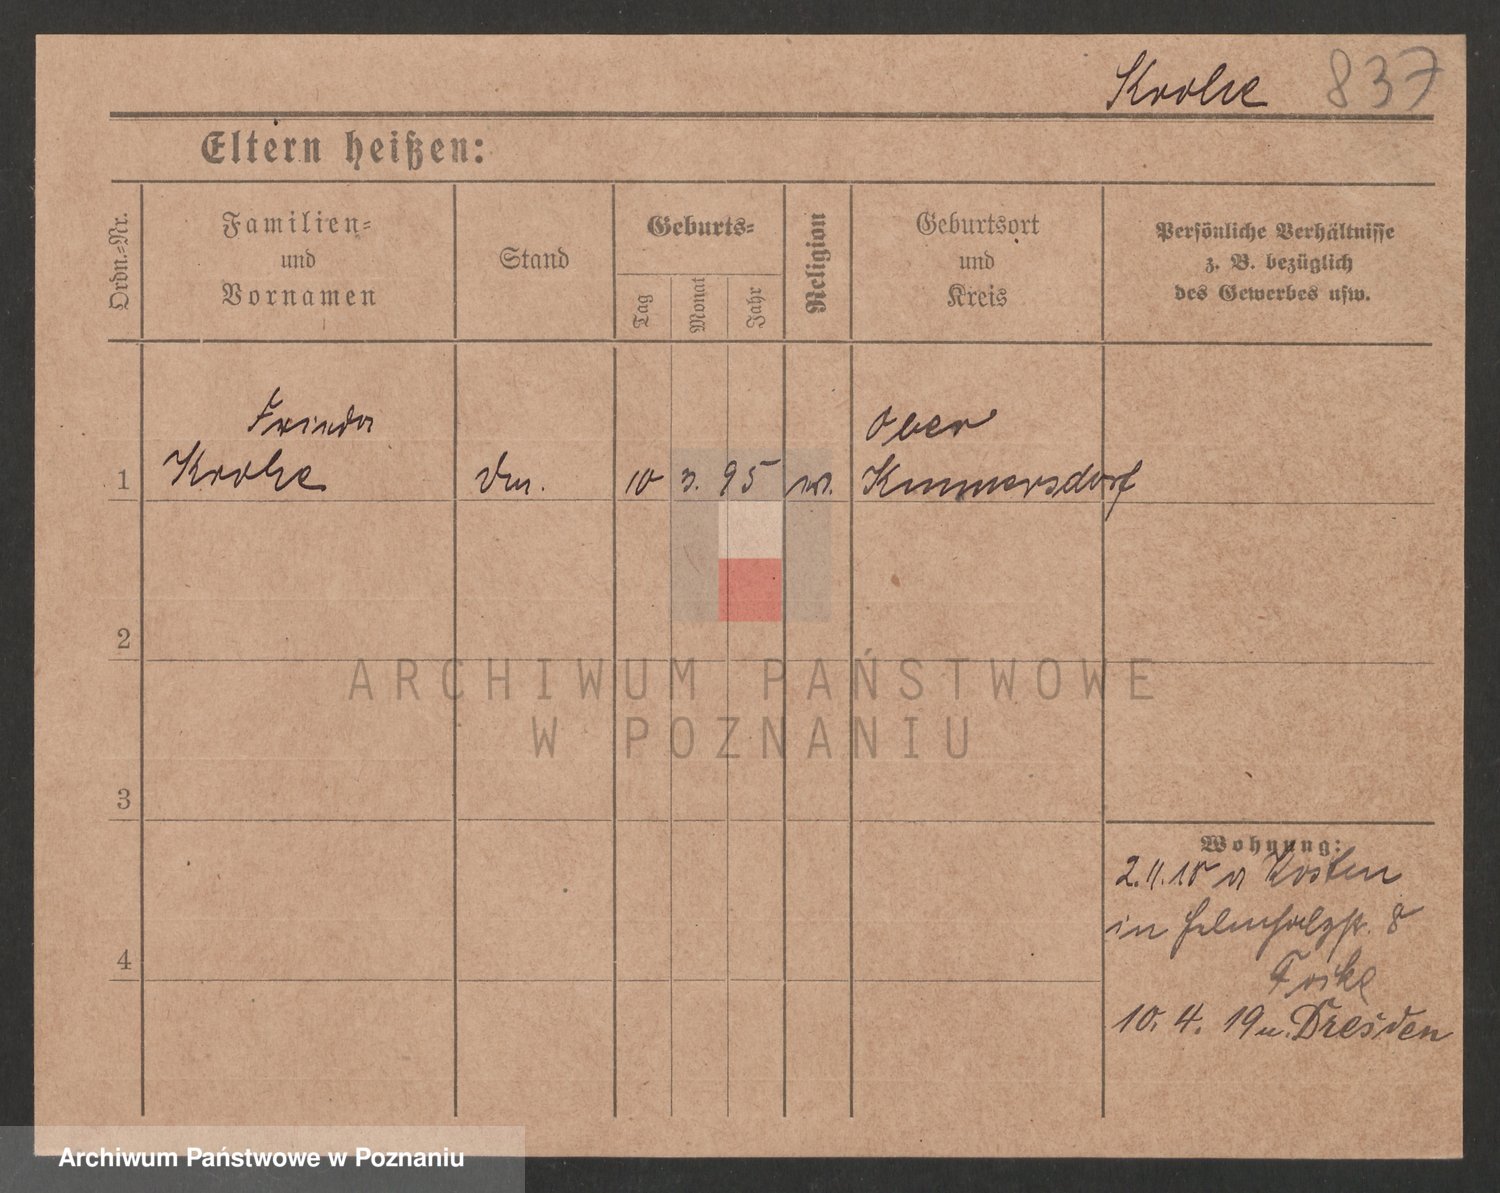 Krohe 837
Eltern heißen:
Ordn.-Nr.
Familien-
und
Vornamen
Stand
Geburts-
Tag
Monat
Jahr
Religion
Geburtsort
und
Kreis
Persönliche Verhältnisse
z. B. bezüglich
des Gewerbes usw.
Frieda
Ober
1 Krohe 10 3. 95 Kummersdorf
2
ARCHIWUM PAŃSTWOWE
W POZNANIU
3
Wohnung:
2.11.18 Kosten
in 8
4
10. 4. 19 n. Dresden
Archiwum Państwowe w Poznaniu